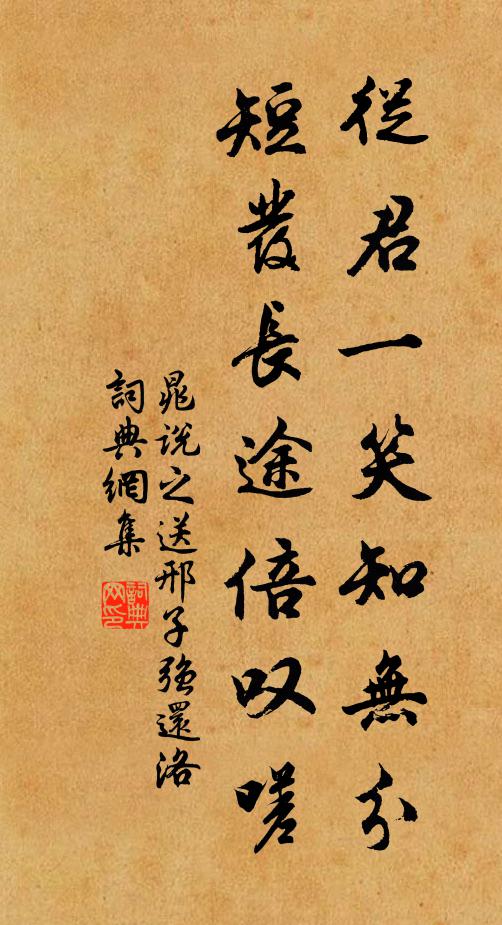 從君一笑知無分
短發長途倍叹嗟
晁說之送邢子強還洛
詞典網集
詞典
网印